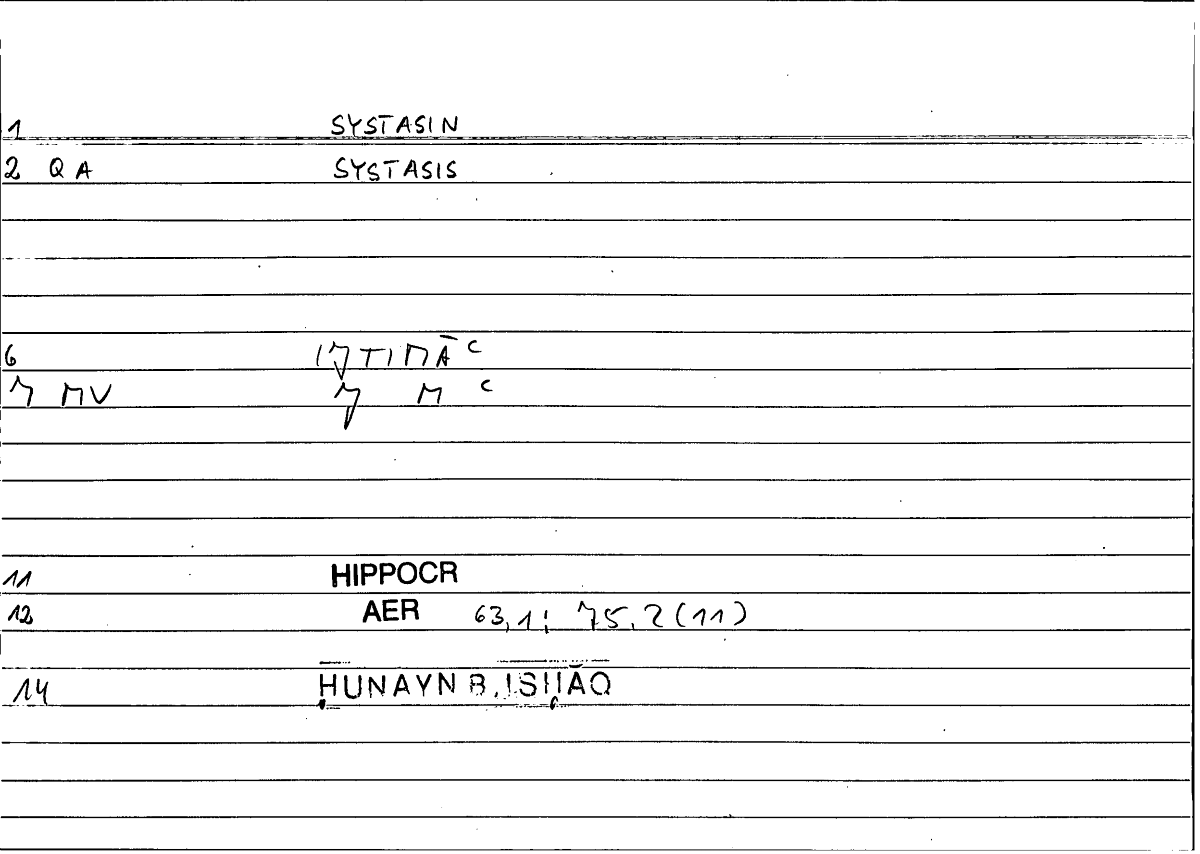 1 SYSTASIN
2 QA SYSTASIS
6 IJTIMĀ ʿ
7 MV J M ʿ
11 HIPPOCR
12 AER 63,1; 75,2(11)
14 ḤUNAYN B. ISḤĀQ